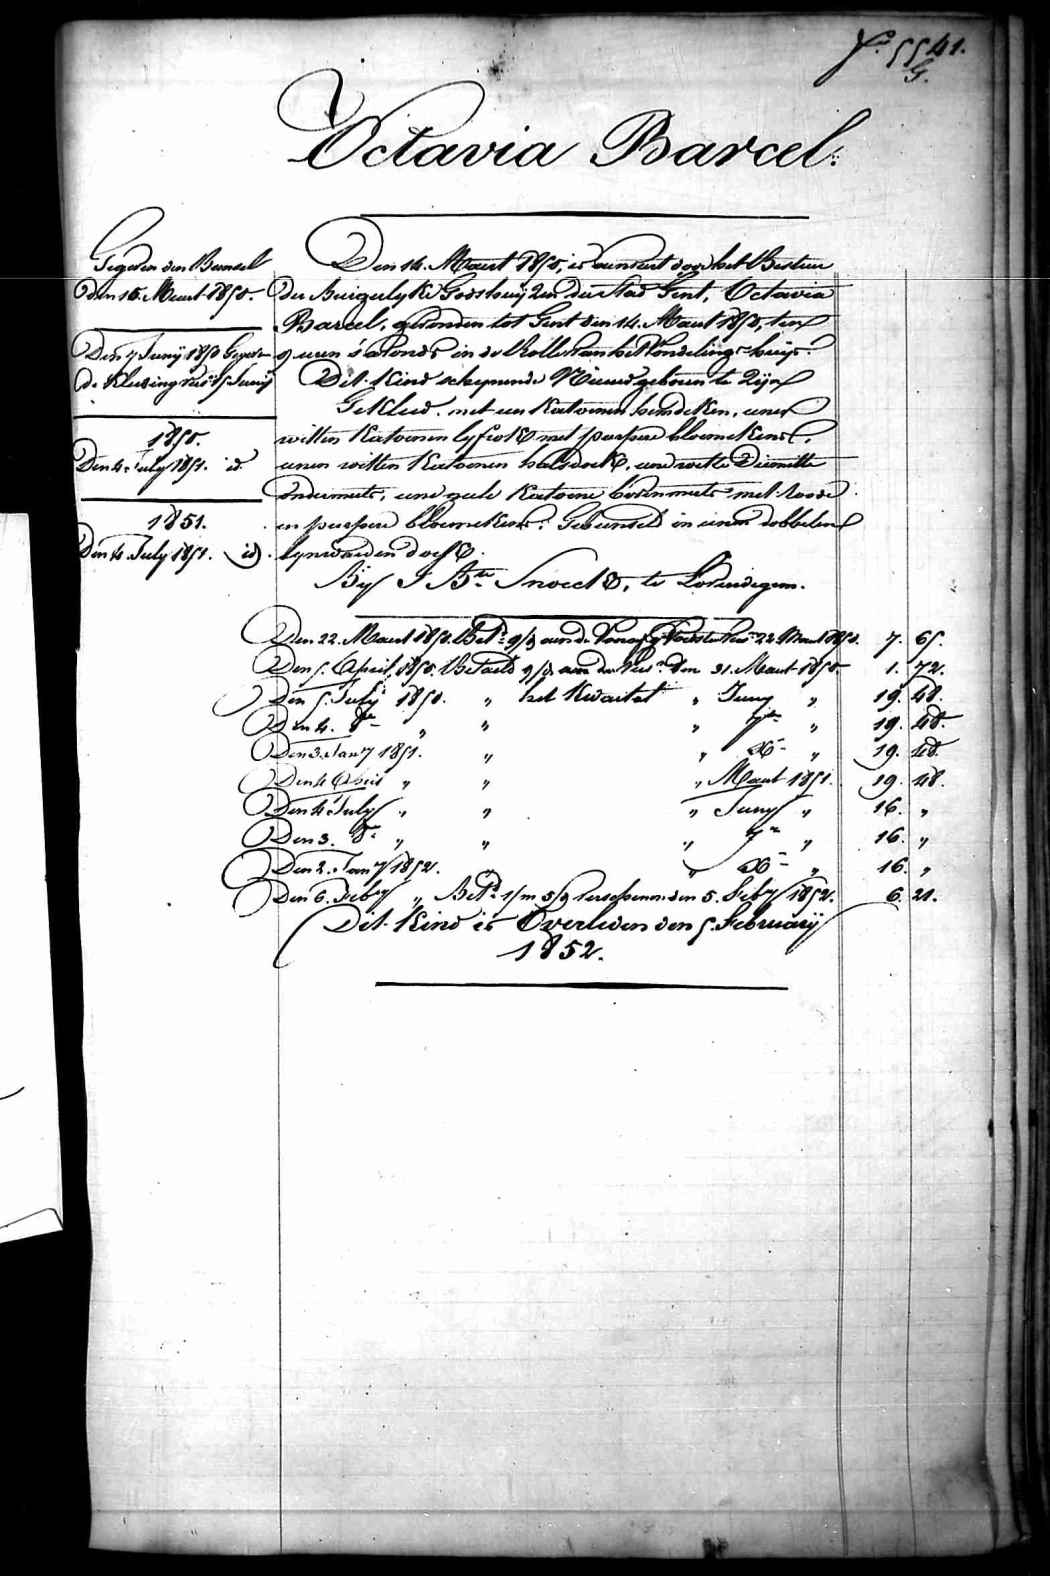 f.º 5541.
G.
Octavia Barcel.
Gegeven den Bunsel
den 15. Maart 1850.
Den 7 Junij 1850 Gegeven
de Kleeding van 15 Junij
1850.
Den 4. July 1851. id.
1851.
Den 4. July 1851. id.
Den 14. Maart 1850, is aanveert door het Bestier
der Burgerlyke Godshuyzen der Stad Gent, Octavia
Barcel, gevonden tot Gent den 14. Maart 1850, ten
9 uren s'avonds in de Rolle van het Vondelings-huys.
Dit Kind schynende Nieuwgeboren te Zyn
Gekleed met een Katoenen hemdeken, eenen
witten Katoenen lyfrok met purpere bloemekens,
eenen witten Katoenen halsdoek, eene witte Dimitte
ondermuts, eene gele Katoene bovenmuts met roode
en purpere bloemekens. Gebunseld in eenen dobbelen
lynwaeden doek.
By J. Bte. Snoeck, te Lovendegem.
Den 22. Maart 1850. Bet. 9/3 aan de Voedster 22 Maart 1850. 7. 65.
Den 5. April, 1850. Betaeld 9/3 aan den 31. Maart 1850. 1. 72.
Den 5. July 1850. „ het Kwartael „ Juny „ 19. 48.
Den 4. 8re „ „ „ 7re „ 19. 48.
Den 3. Jany 1851. „ „ Xre „ 19. 48.
Den 4 April „ „ „ Maart 1851. 19. 48.
Den 4 July „ „ „ Juny „ 16. „
Den 3. 8re „ „ „ 7re „ 16. „
Den 2. Jany 1852. „ Xre „ 16. „
Den 6. Feby „ Bet. 1/m 5/9 verschenen den 5. Feby 1852. 6. 21.
Dit Kind is Overleden den 5. February
1852.